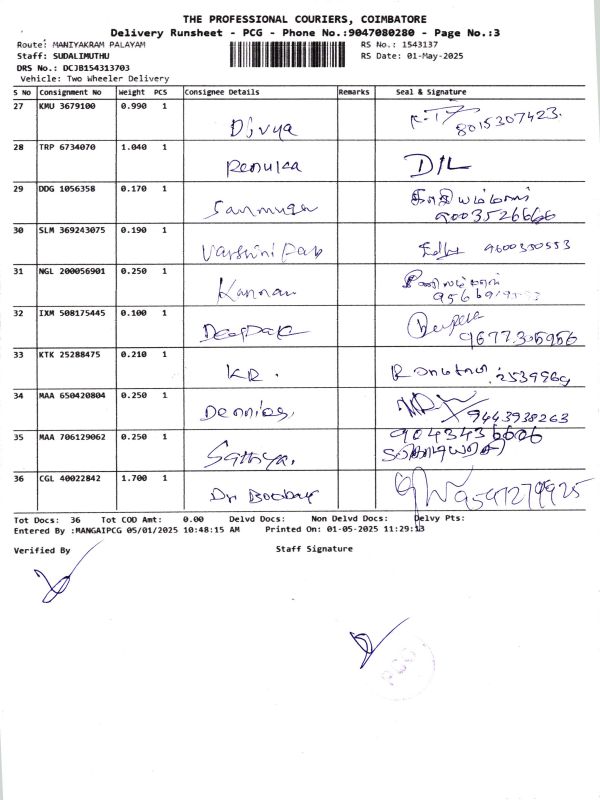 THE PROFESSIONAL COURIERS, COIMBATORE
Delivery Runsheet - PCG - Phone No.:9047080280 - Page No.:3
Route: MANIYAKRAM PALAYAM RS No.: 1543137
Staff: SUDALIMUTHU RS Date: 01-May-2025
DRS No.: DCJB154313703
Vehicle: Two Wheeler Delivery
S No Consignment No Weight PCS Consignee Details Remarks Seal & Signature
27 KMU 3679100 0.990 1 Divya 8015307423.
28 TRP 6734070 1.040 1 Renuka D/L
29 DDG 1056358 0.170 1 Sanmuga 9003526666
30 SLM 369243075 0.190 1 Varshini 9600330553
31 NGL 200056901 0.250 1 Kannan
32 IXM 508175445 0.100 1 Deepak Deepak 9677305956
33 KTK 25288475 0.210 1 KR.
34 MAA 650420804 0.250 1 9443938263
35 MAA 706129062 0.250 1 Sathya. 9043436606
36 CGL 40022842 1.700 1
Tot Docs: 36 Tot COD Amt: 0.00 Delvd Docs: Non Delvd Docs: Delvy Pts:
Entered By :MANGAIPCG 05/01/2025 10:48:15 AM Printed On: 01-05-2025 11:29:13
Verified By Staff Signature